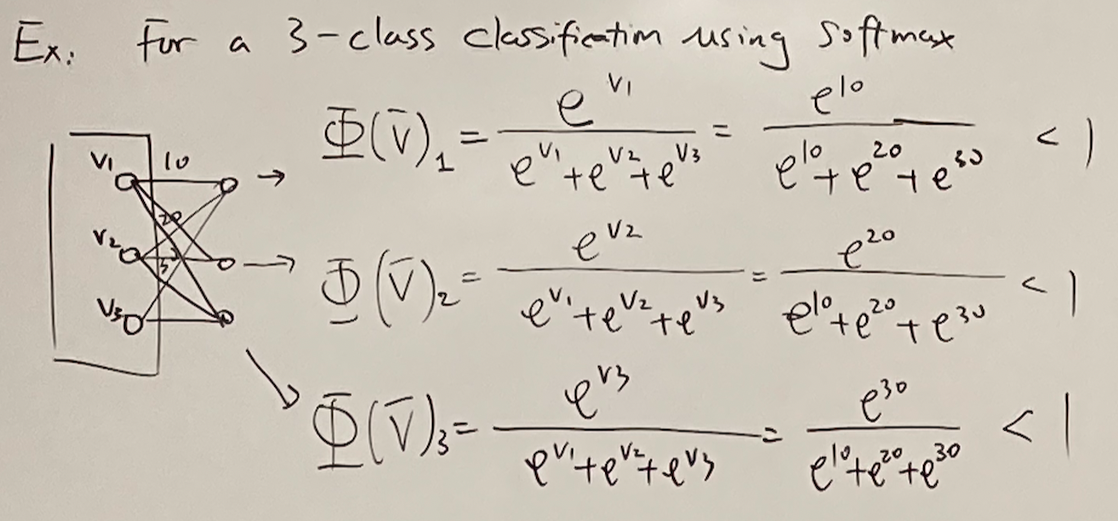 Ex: For a 3-class classification using Softmax
Φ(v̄)₁ = e^{v₁} / (e^{v₁} + e^{v₂} + e^{v₃}) = e^{10} / (e^{10} + e^{20} + e^{30}) < 1
v₁ 10
20
v₂
Φ(v̄)₂ = e^{v₂} / (e^{v₁} + e^{v₂} + e^{v₃}) = e^{20} / (e^{10} + e^{20} + e^{30}) < 1
v₃
Φ(v̄)₃ = e^{v₃} / (e^{v₁} + e^{v₂} + e^{v₃}) = e^{30} / (e^{10} + e^{20} + e^{30}) < 1